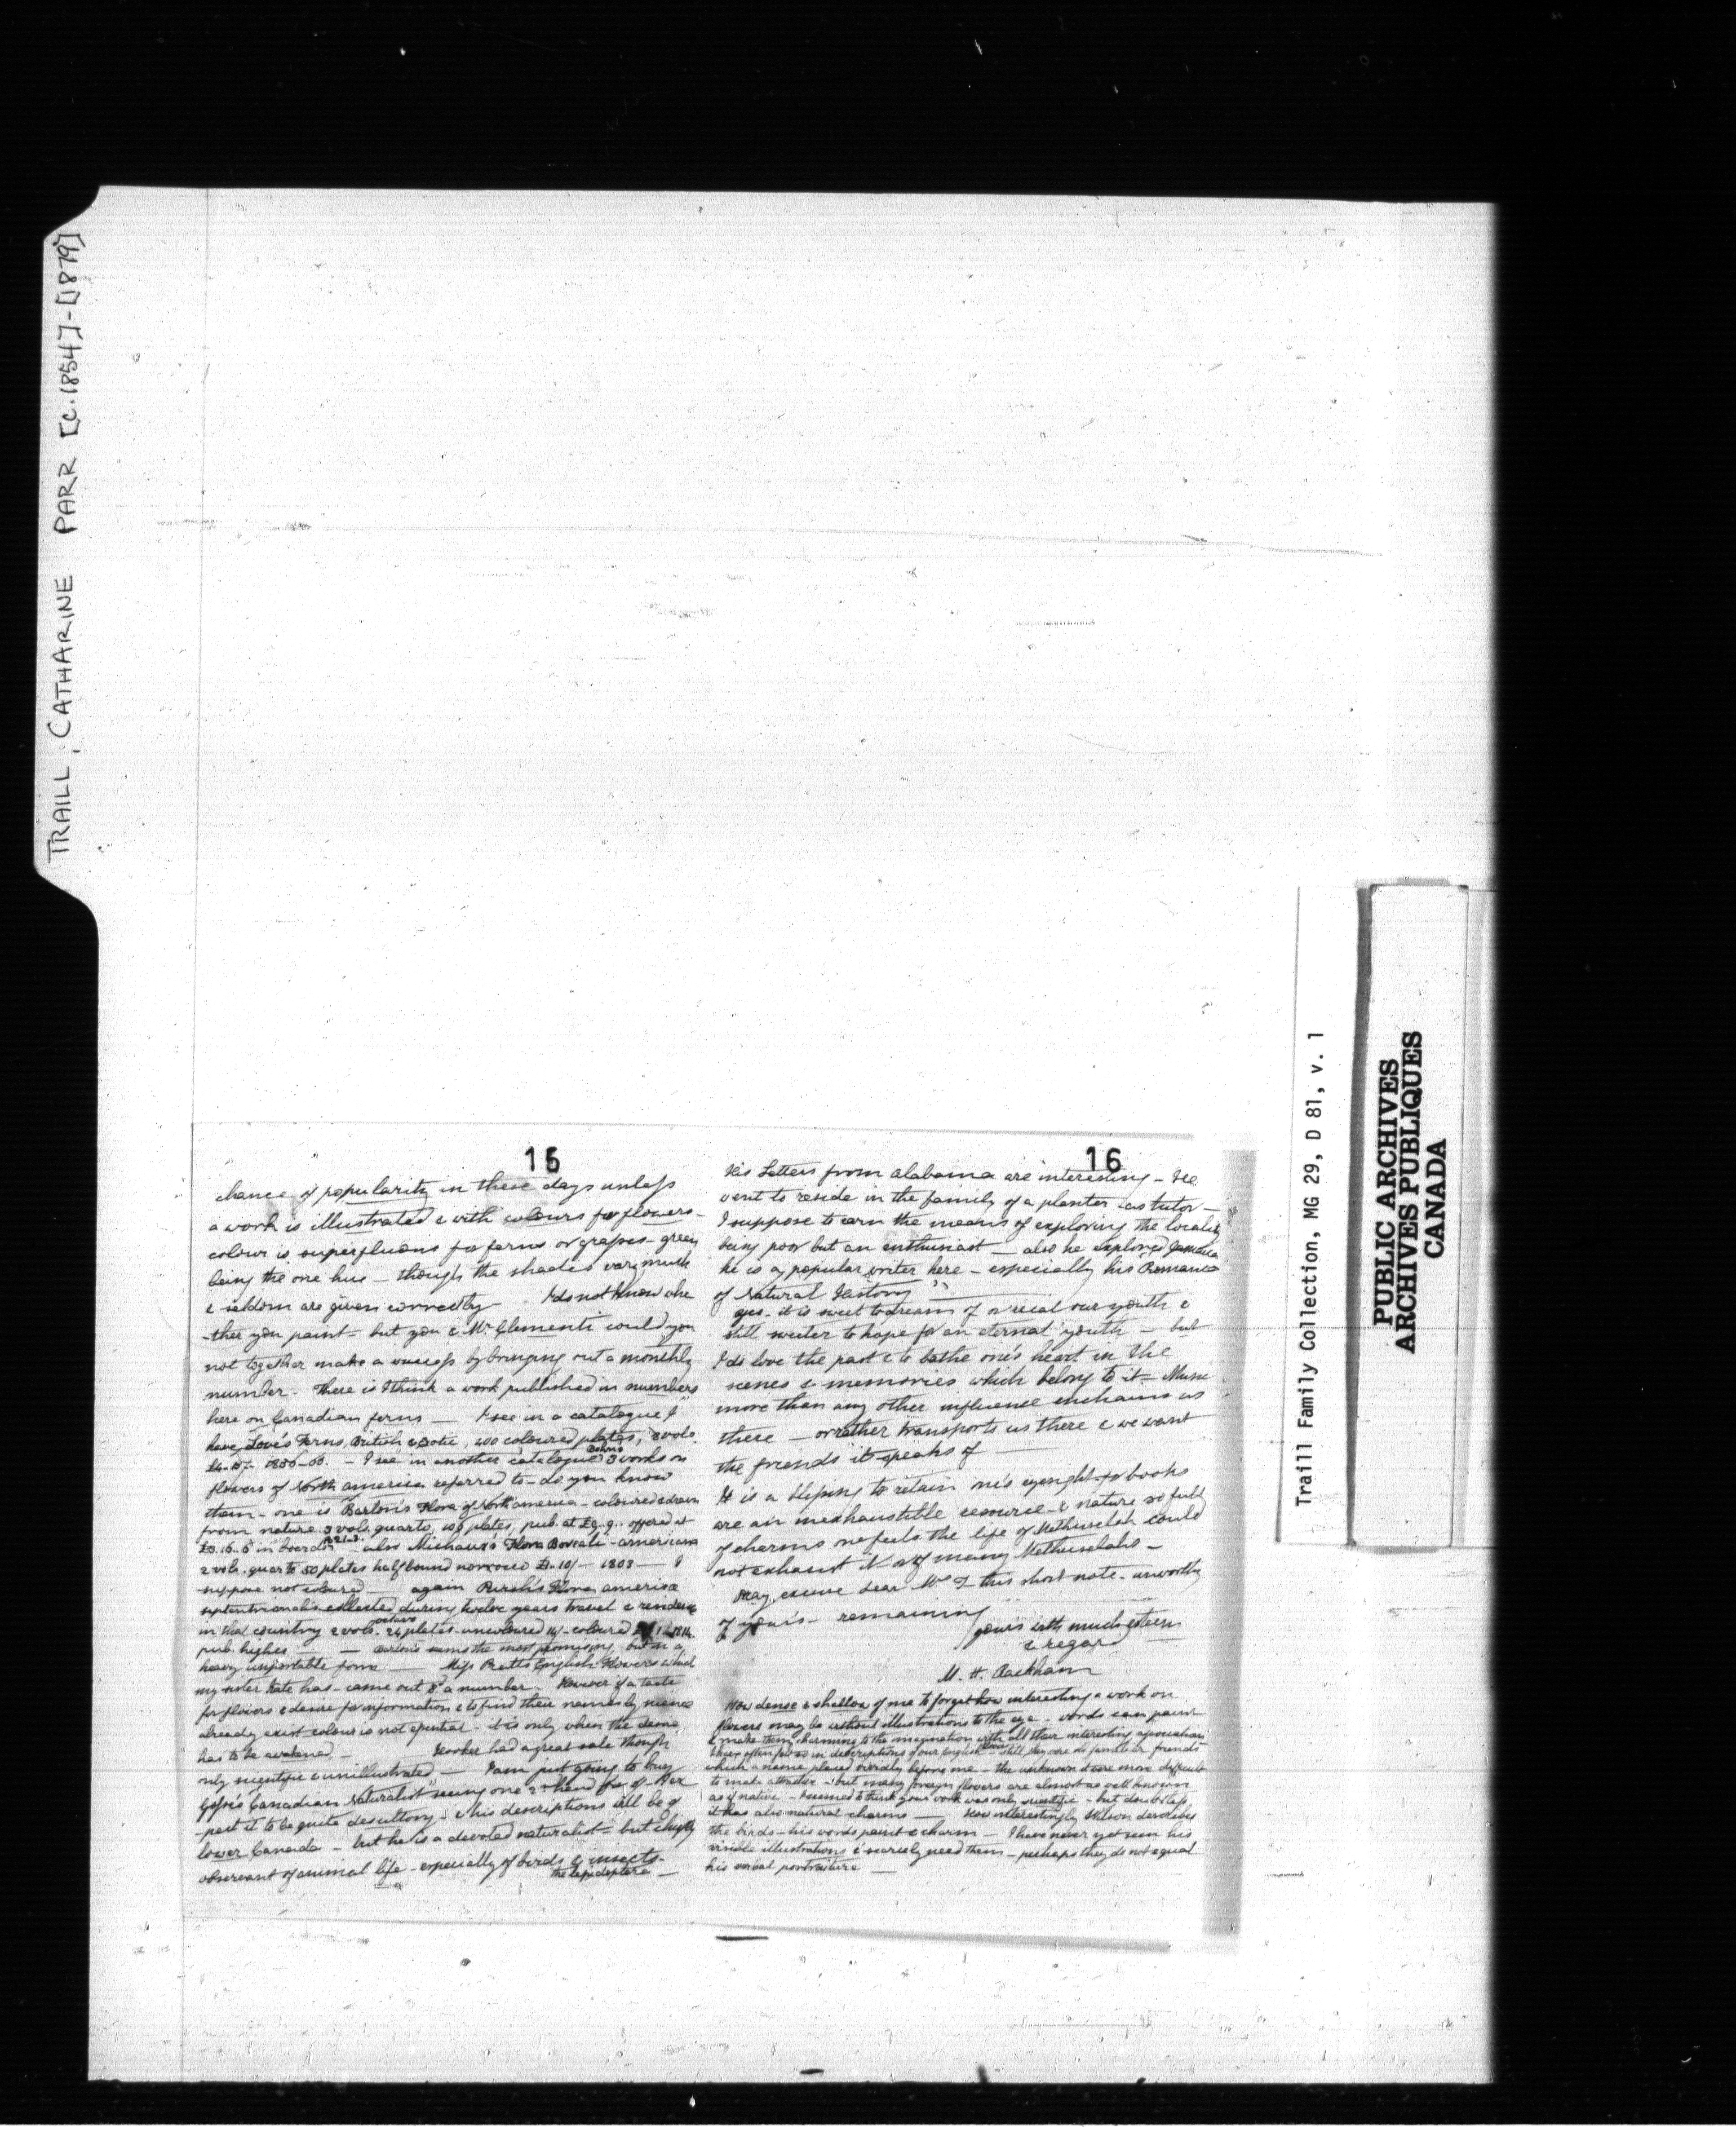 TRAILL, CATHARINE PARR [C.1854]-[1879]
15
chance of popularity in these days unless
a work is illustrated & with colours for flowers -
colour is superfluous for ferns or grapes - green
being the one hue - though the shades vary much
& seldom are given correctly. I do not know whe
-ther you paint - but you & Mr. Clementi could you
not together make a success by bringing out a monthly
number. There is I think a work published in numbers
here on Canadian ferns - I see in a catalogue I
have Lowe's Ferns, British & Exotic, 400 coloured plates, 8 vols
1856-60. - I see in another catalogue 3 works on
flowers of North America referred to - do you know
them - one is Barton's Flora of North America - coloured & drawn
from nature 3 vols. quarto, 106 plates, pub. at £9.9. offered at
£3.16.6 in boards 1821-3. - also Michaux's Flora Boreali-americana
2 vols. quarto 50 plates half bound morocco £1.10/- 1803 - I
suppose not coloured - again Pursh's Flora americæ
septentrionalis collected during twelve years travel & residence
in that country 2 vols. octavo 24 plates - uncoloured 14/- coloured 1814.
pub. higher - Barton's seems the most promising, but in a
heavy unportable form - Miss Pratt's English Flowers which
my sister Kate has - came out a number. However if a taste
for flowers & desire for information & to find their names by science
already exist colour is not essential - it is only when the desire
has to be awakened - Hooker had a great sale though
only scientific & unillustrated - I am just going to buy
Gosse's "Canadian Naturalist" seeing one 2nd hand for 4/- I ex
-pect it to be quite desultory - & his descriptions will be of
lower Canada - but he is a devoted naturalist - but chiefly
observant of animal life - especially of birds & insects -
the lepidoptera -
16
His Letters from Alabama are interesting - He
went to reside in the family of a planter as tutor -
I suppose to earn the means of exploring the locality
being poor but an enthusiast - also he explored Jamaica
he is a popular writer here - especially his Romance
of Natural History"
Yes - it is sweet to dream of or recal our youth &
still sweeter to hope for an eternal youth - but
I do love the past & to bathe one's heart in the
scenes & memories which belong to it - Music
more than any other influence enchains us
there - or rather transports us there & we want
the friends it speaks of -
It is a blessing to retain one's eyesight - for books
are an inexhaustible resource - & nature so full
of charms one feels the life of Methuselah could
not exhaust it or of many Methuselahs -
Pray excuse dear Mrs T this short note - unworthy
of yours - remaining
yours with much esteem
& regard
M. H. Rackham
How dense & shallow of me to forget how interesting a work on
flowers may be without illustrations to the eye - words can paint
& make them charming to the imagination with all their interesting associations
I have often felt so in descriptions of our English flowers - still, they are old familiar friends
which a name placed vividly before me - the unknown were more difficult
to make attractive - but many foreign flowers are almost as well known
as if native - I seemed to think your work was only scientific - but doubtless
it has also natural charms - How interestingly Wilson describes
the birds - his words paint & charm - I have never yet seen his
visible illustrations & scarcely need them - perhaps they do not equal
his verbal portraiture -
Traill Family Collection, MG 29, D 81, v. 1
PUBLIC ARCHIVES
ARCHIVES PUBLIQUES
CANADA